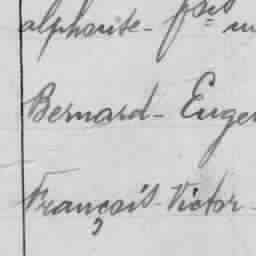 alphonse - fçois
Bernard - Euge
François - Victor -